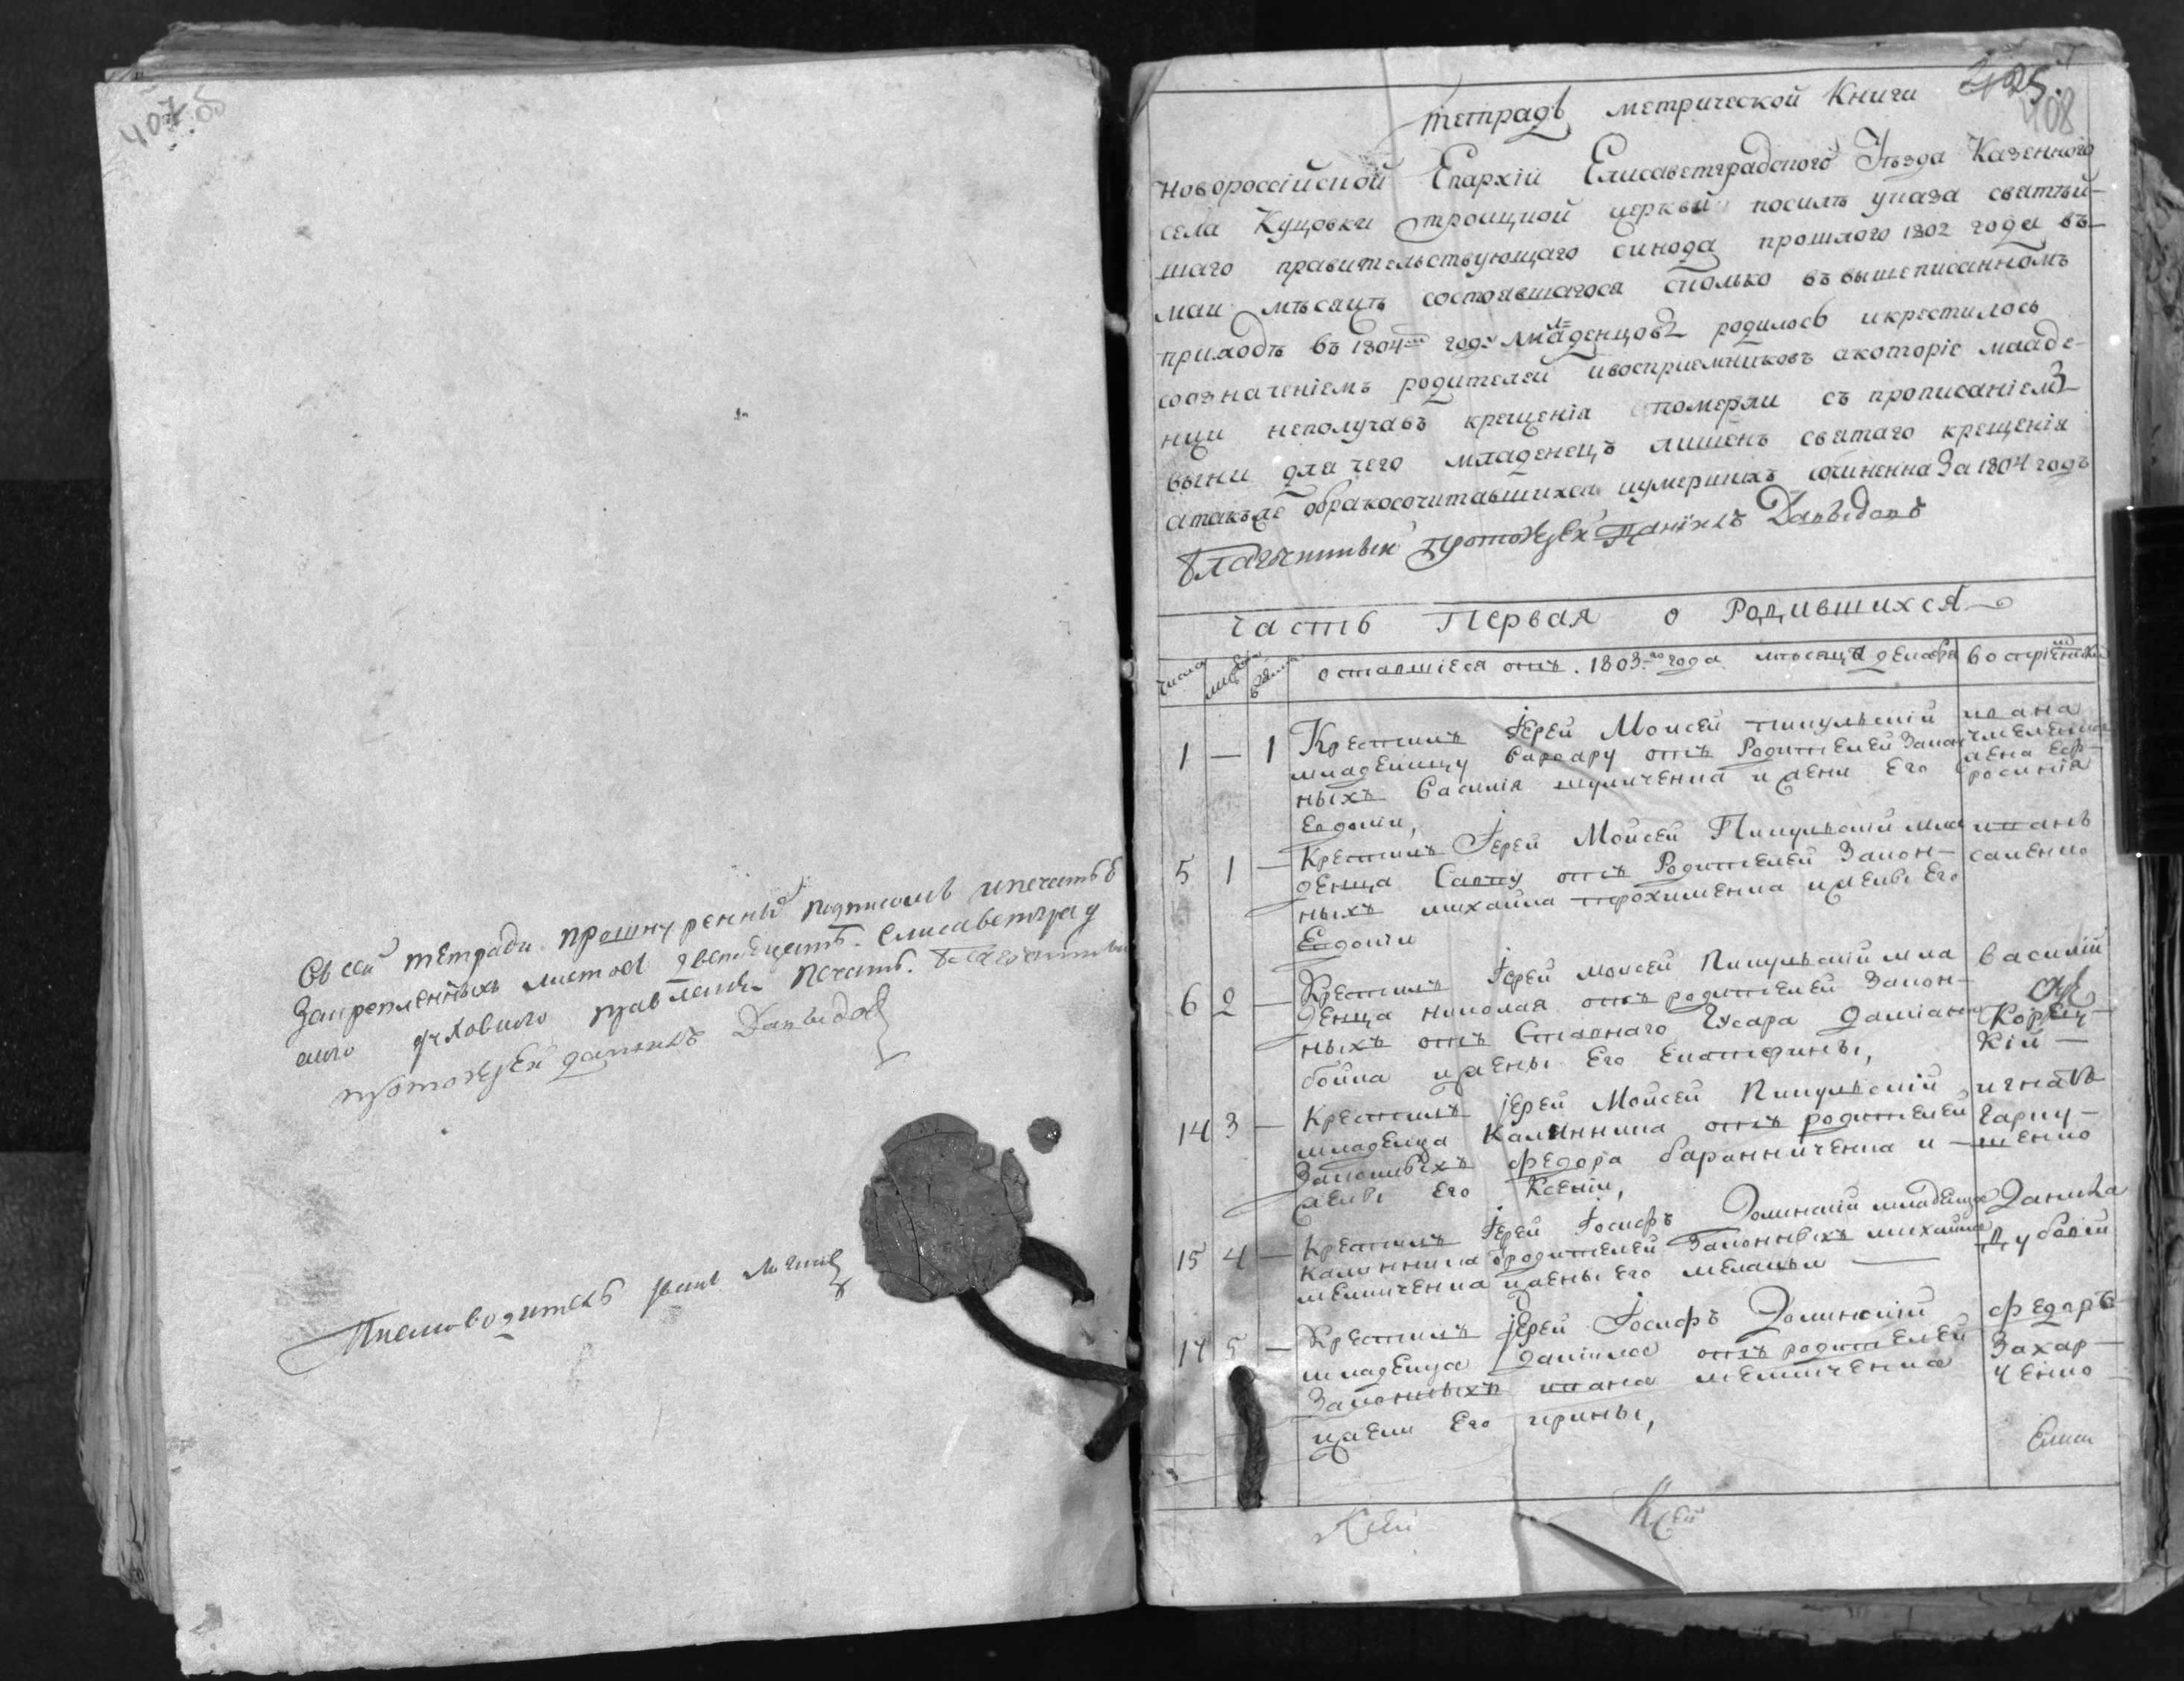 407 об
Въ сей тетради прошнуренныхъ подписомъ и печатьѣ
закрепленныхъ листов двенадцать. Елисаветград
скаго духовного правления печать. Благочинный
протоиерей Даниилъ Давыдовъ
Писмоводитель
408
Тетрадь метрической Книги
Новороссійской Епархіи Елисаветградского Уезда Казенного
села Куцовки троицкой церкви посилъ указа святѣй-
шаго правительствующаго синода прошлого 1802 года въ
маи мѣсяцѣ состоявшагося сколько въ вышеписанномъ
приходѣ въ 1804 году младенцовъ родилось и крестилось
со означеніемъ родителей и восприемниковъ а которіе младе-
нци неполучавъ крещенія померли съ прописаніемъ
выни для чего младенецъ лишенъ святаго крещенія
а такъже обракосочитавшихся и умершихъ сочиненна За 1804 годъ
Благочинный протоиерей Даніилъ Давыдовъ
Часть Первая о Родившихся
число
оставшіеся отъ 1803-го года мѣсяца декабря
1 — 1 Крестилъ Іерей Моисей Пикульскій
младеницу Варвару отъ Родителей Закон
ныхъ Василія шуличенка и жени Его
Евдокіи,
ивана
жена Еф-
росинія
5 1 — Крестилъ Іерей Моисей Пикульскій мла
денца Савву отъ Родителей Закон-
ныхъ михаила трохименка и жены Его
Евдокіи
иванъ
саленко
6 2 — Крестилъ Іерей Моисей Пикульскій мла
денца николая отъ родителей Закон-
ныхъ отъ Ставнаго Гусара даміана
бойка и жены Его Екатерины,
василій
Корец
кій —
14 3 — Крестилъ Іерей Моисей Пикульскій
младенца Каллиника отъ родителей
Законныхъ Федора баранниченка и —
жены Его Ксеніи,
игнатъ
Гарку-
шенко
15 4 — Крестилъ Іерей Іосифъ Долинскій младенца
Каллиника отъ родителей Законныхъ михаила
мелниченка и жены Его меланьи
Данила
Дубовій
17 5 — Крестилъ Іерей Іосифъ Долинскій
младенца Даніила отъ родителей
Законныхъ ивана мелниченка
и жени Его ирины,
Федоръ
Захар-
ченко
Елиса